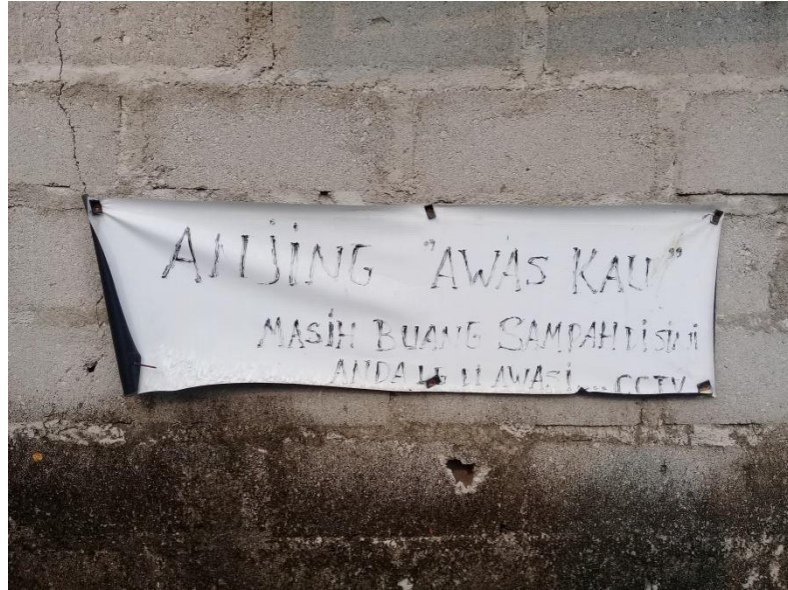 ANJING "AWAS KAU"
MASIH BUANG SAMPAH DISINI
ANDA LG DI AWASI... CCTV